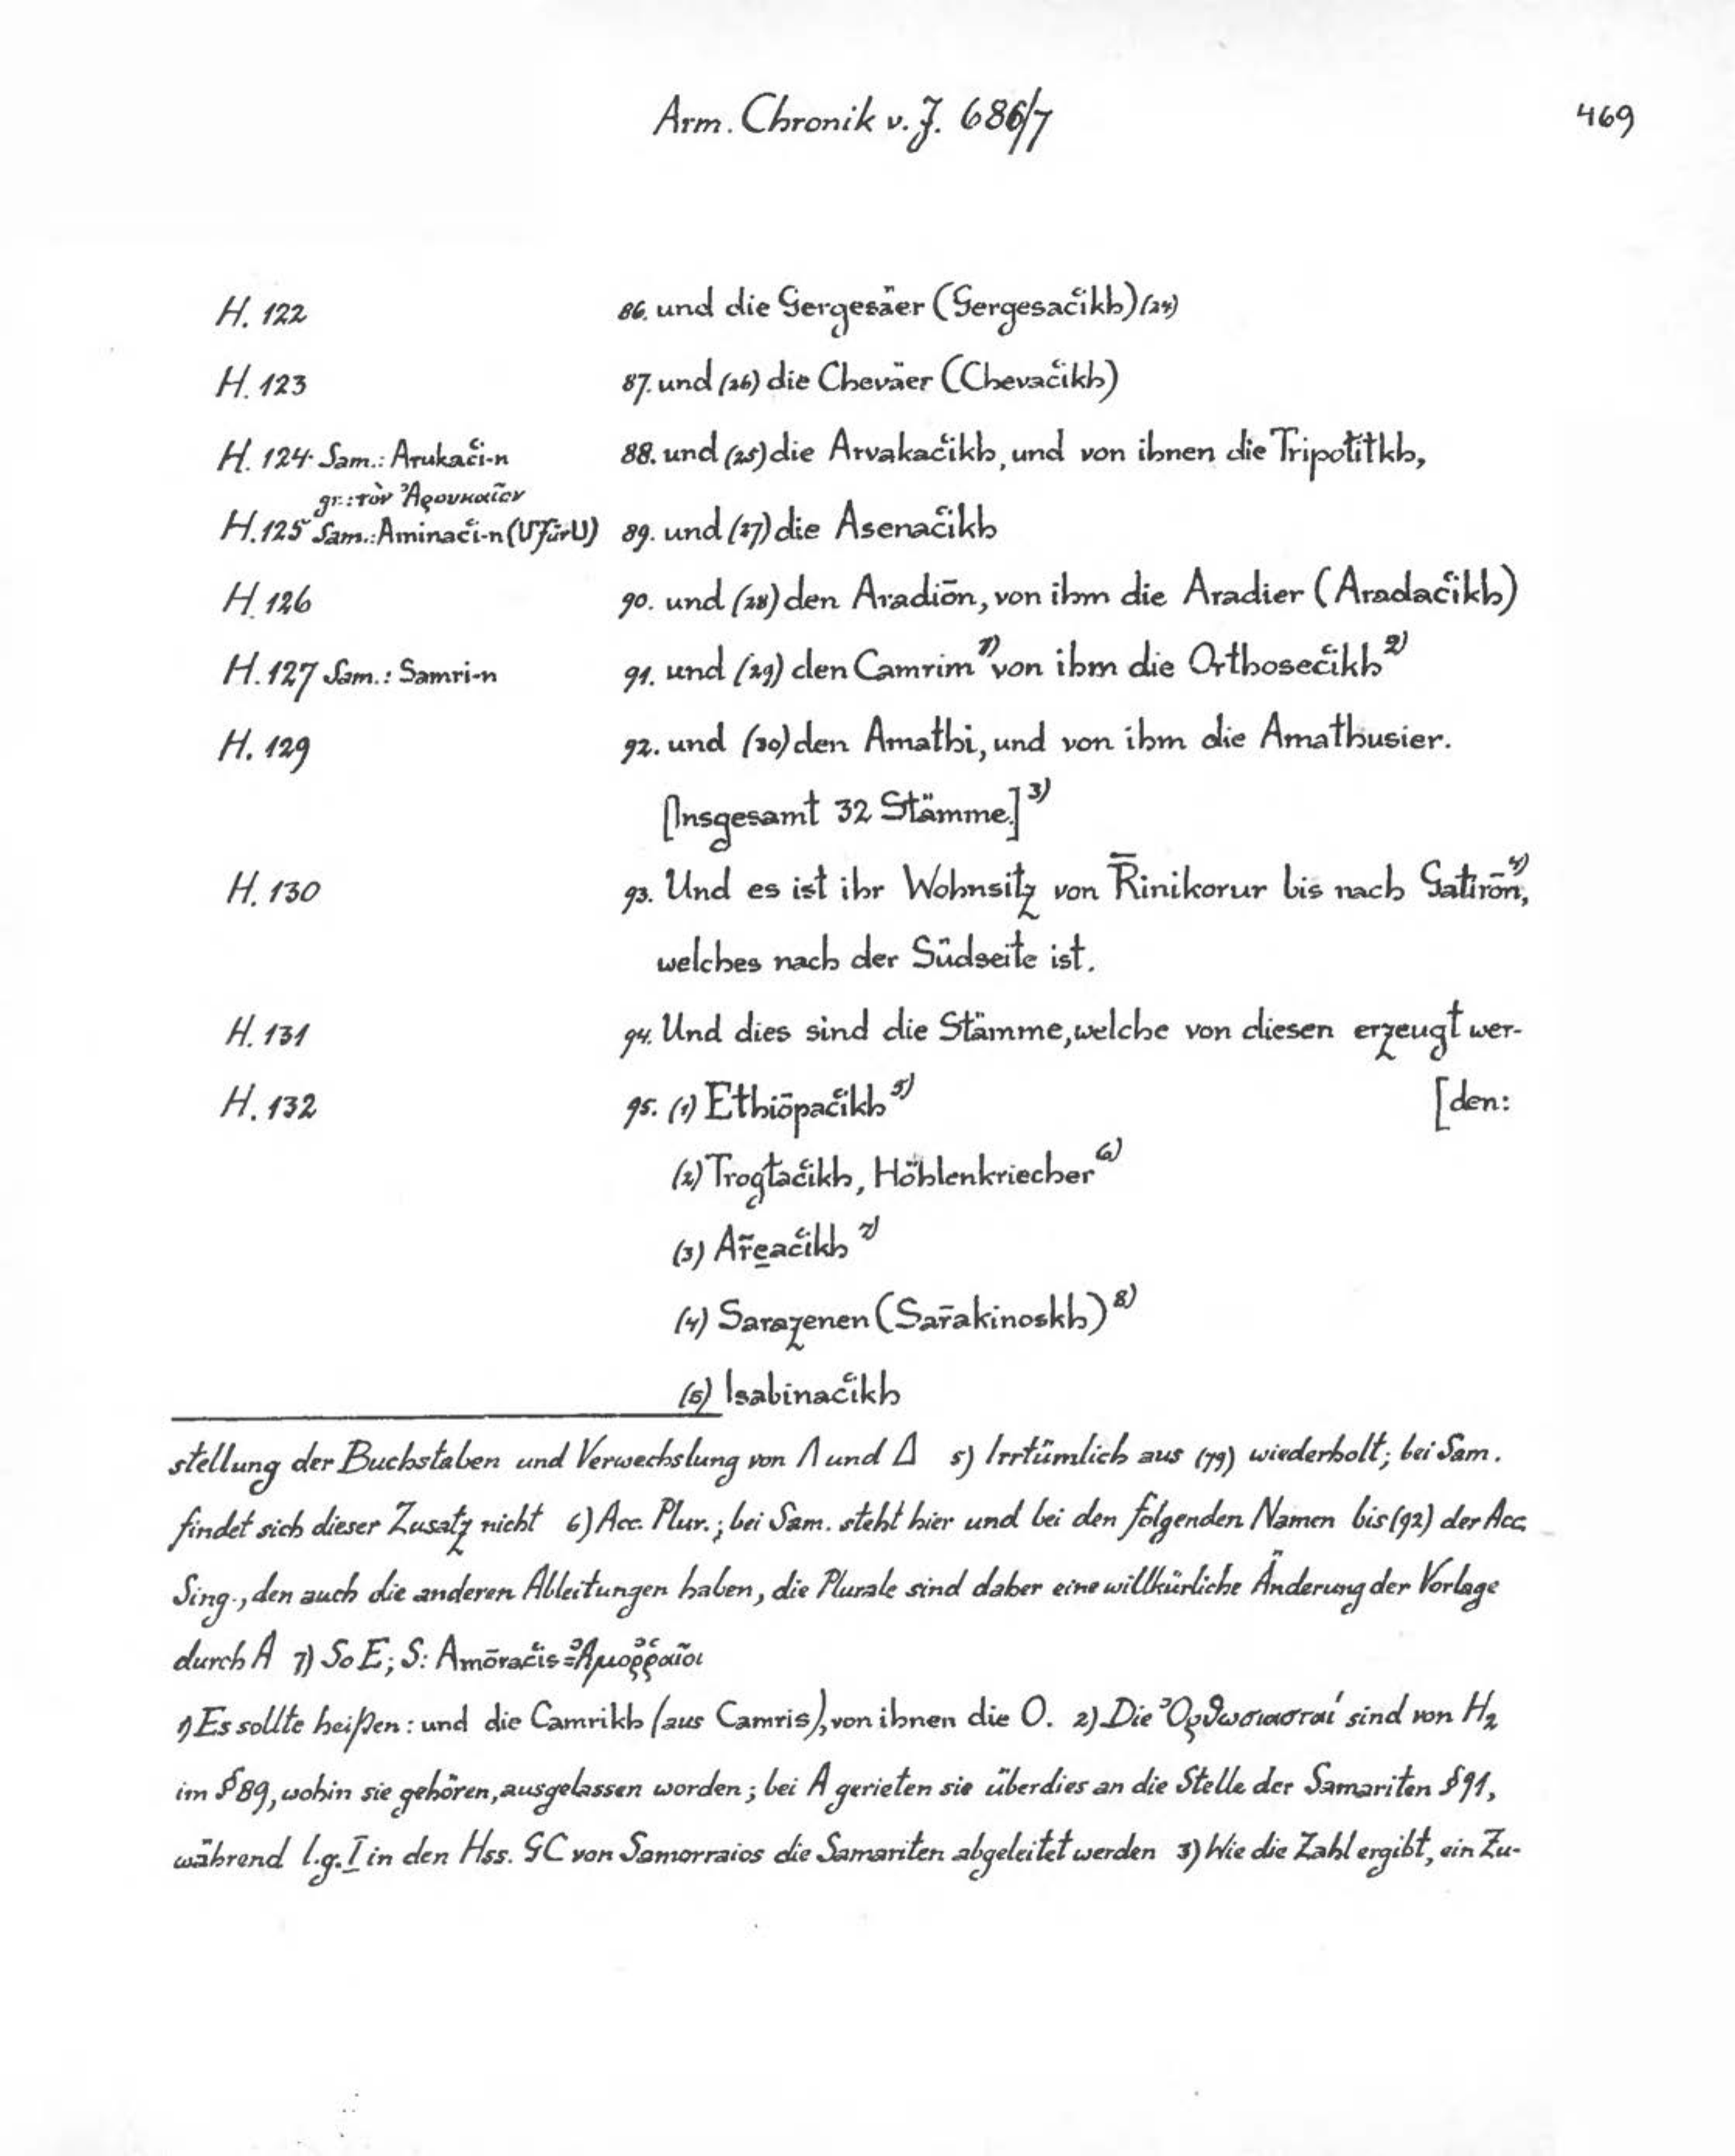 Arm. Chronik v. J. 686/7 469
H. 122 86. und die Gergesäer (Gergesac̔ikh) (24)
H. 123 87. und (26) die Cheväer (Chevac̔ikh)
H. 124 Sam.: Arukac̔i-n 88. und (25) die Arvakac̔ikh, und von ibnen die Tripolitkh,
gr.: τὸν Ἀρουκαῖον
H. 125 Sam.: Aminac̔i-n (Մ für Ս) 89. und (27) die Asenac̔ikh
H. 126 90. und (28) den Aradiōn, von ihm die Aradier (Aradac̔ikh)
H. 127 Sam.: Samri-n 91. und (29) den Camrim 1) von ihm die Orthosec̔ikh 2)
H. 129 92. und (30) den Amathi, und von ihm die Amathusier.
[Insgesamt 32 Stämme.] 3)
H. 130 93. Und es ist ihr Wohnsitz von R̄inikorur bis nach Gatirōn, 4)
welches nach der Südseite ist.
H. 131 94. Und dies sind die Stämme, welche von diesen erzeugt wer-
H. 132 95. (1) Ethiōpac̔ikh 5) [den:
(2) Trogtac̔ikh, Höhlenkriecher 6)
(3) Ar̄eac̔ikh 7)
(4) Sarazenen (Sar̄akinoskh) 8)
(5) Isabinac̔ikh
stellung der Buchstaben und Verwechslung von Λ und Δ 5) Irrtümlich aus (79) wiederholt; bei Sam.
findet sich dieser Zusatz nicht 6) Acc. Plur.; bei Sam. steht hier und bei den folgenden Namen bis (92) der Acc.
Sing., den auch die anderen Ableitungen haben, die Plurale sind daher eine willkürliche Änderung der Vorlage
durch A 7) So E; S: Amōrac̔is = Ἀμοῤῥαῖοι
1) Es sollte heißen: und die Camrikh (aus Camris), von ihnen die O. 2) Die Ὀρθωσιασταί sind von H₂
im § 89, wohin sie gehören, ausgelassen worden; bei A gerieten sie überdies an die Stelle der Samariten § 91,
während l.g. I in den Hss. GC von Samorraios die Samariten abgeleitet werden 3) Wie die Zahl ergibt, ein Zu-